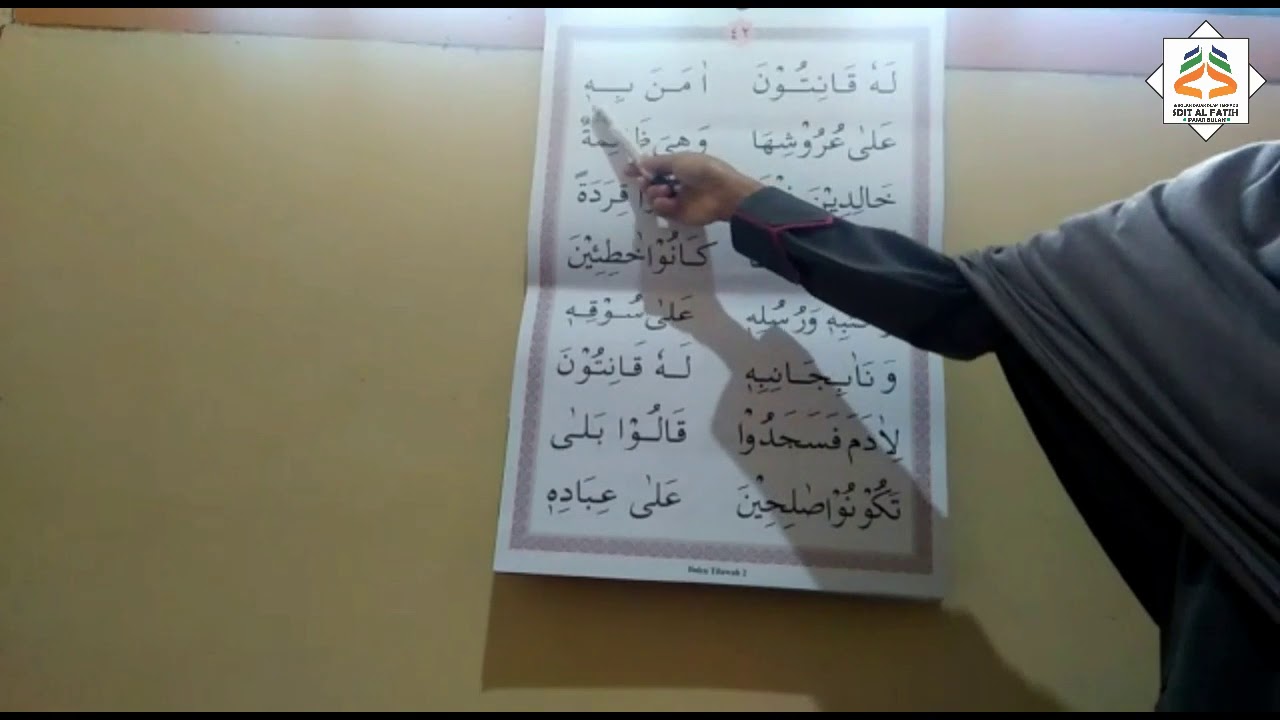 ٤٢
لَهٗ قَانِتُوْنَ اٰمَنَ بِهٖ
عَلٰى عُرُوْشِهَا وَهِيَ
خَالِدِيْنَ قِرَدَةً
كَانُوْا خٰطِئِيْنَ
وَرُسُلِهٖ عَلٰى سُوْقِهٖ
وَنَاٰبِجَانِبِهٖ لَهٗ قَانِتُوْنَ
لِاٰدَمَ فَسَجَدُوْا قَالُوْا بَلٰى
تَكُوْنُوْا صٰلِحِيْنَ عَلٰى عِبَادِهٖ
Buku Tilawah 2
SDIT AL FATIH